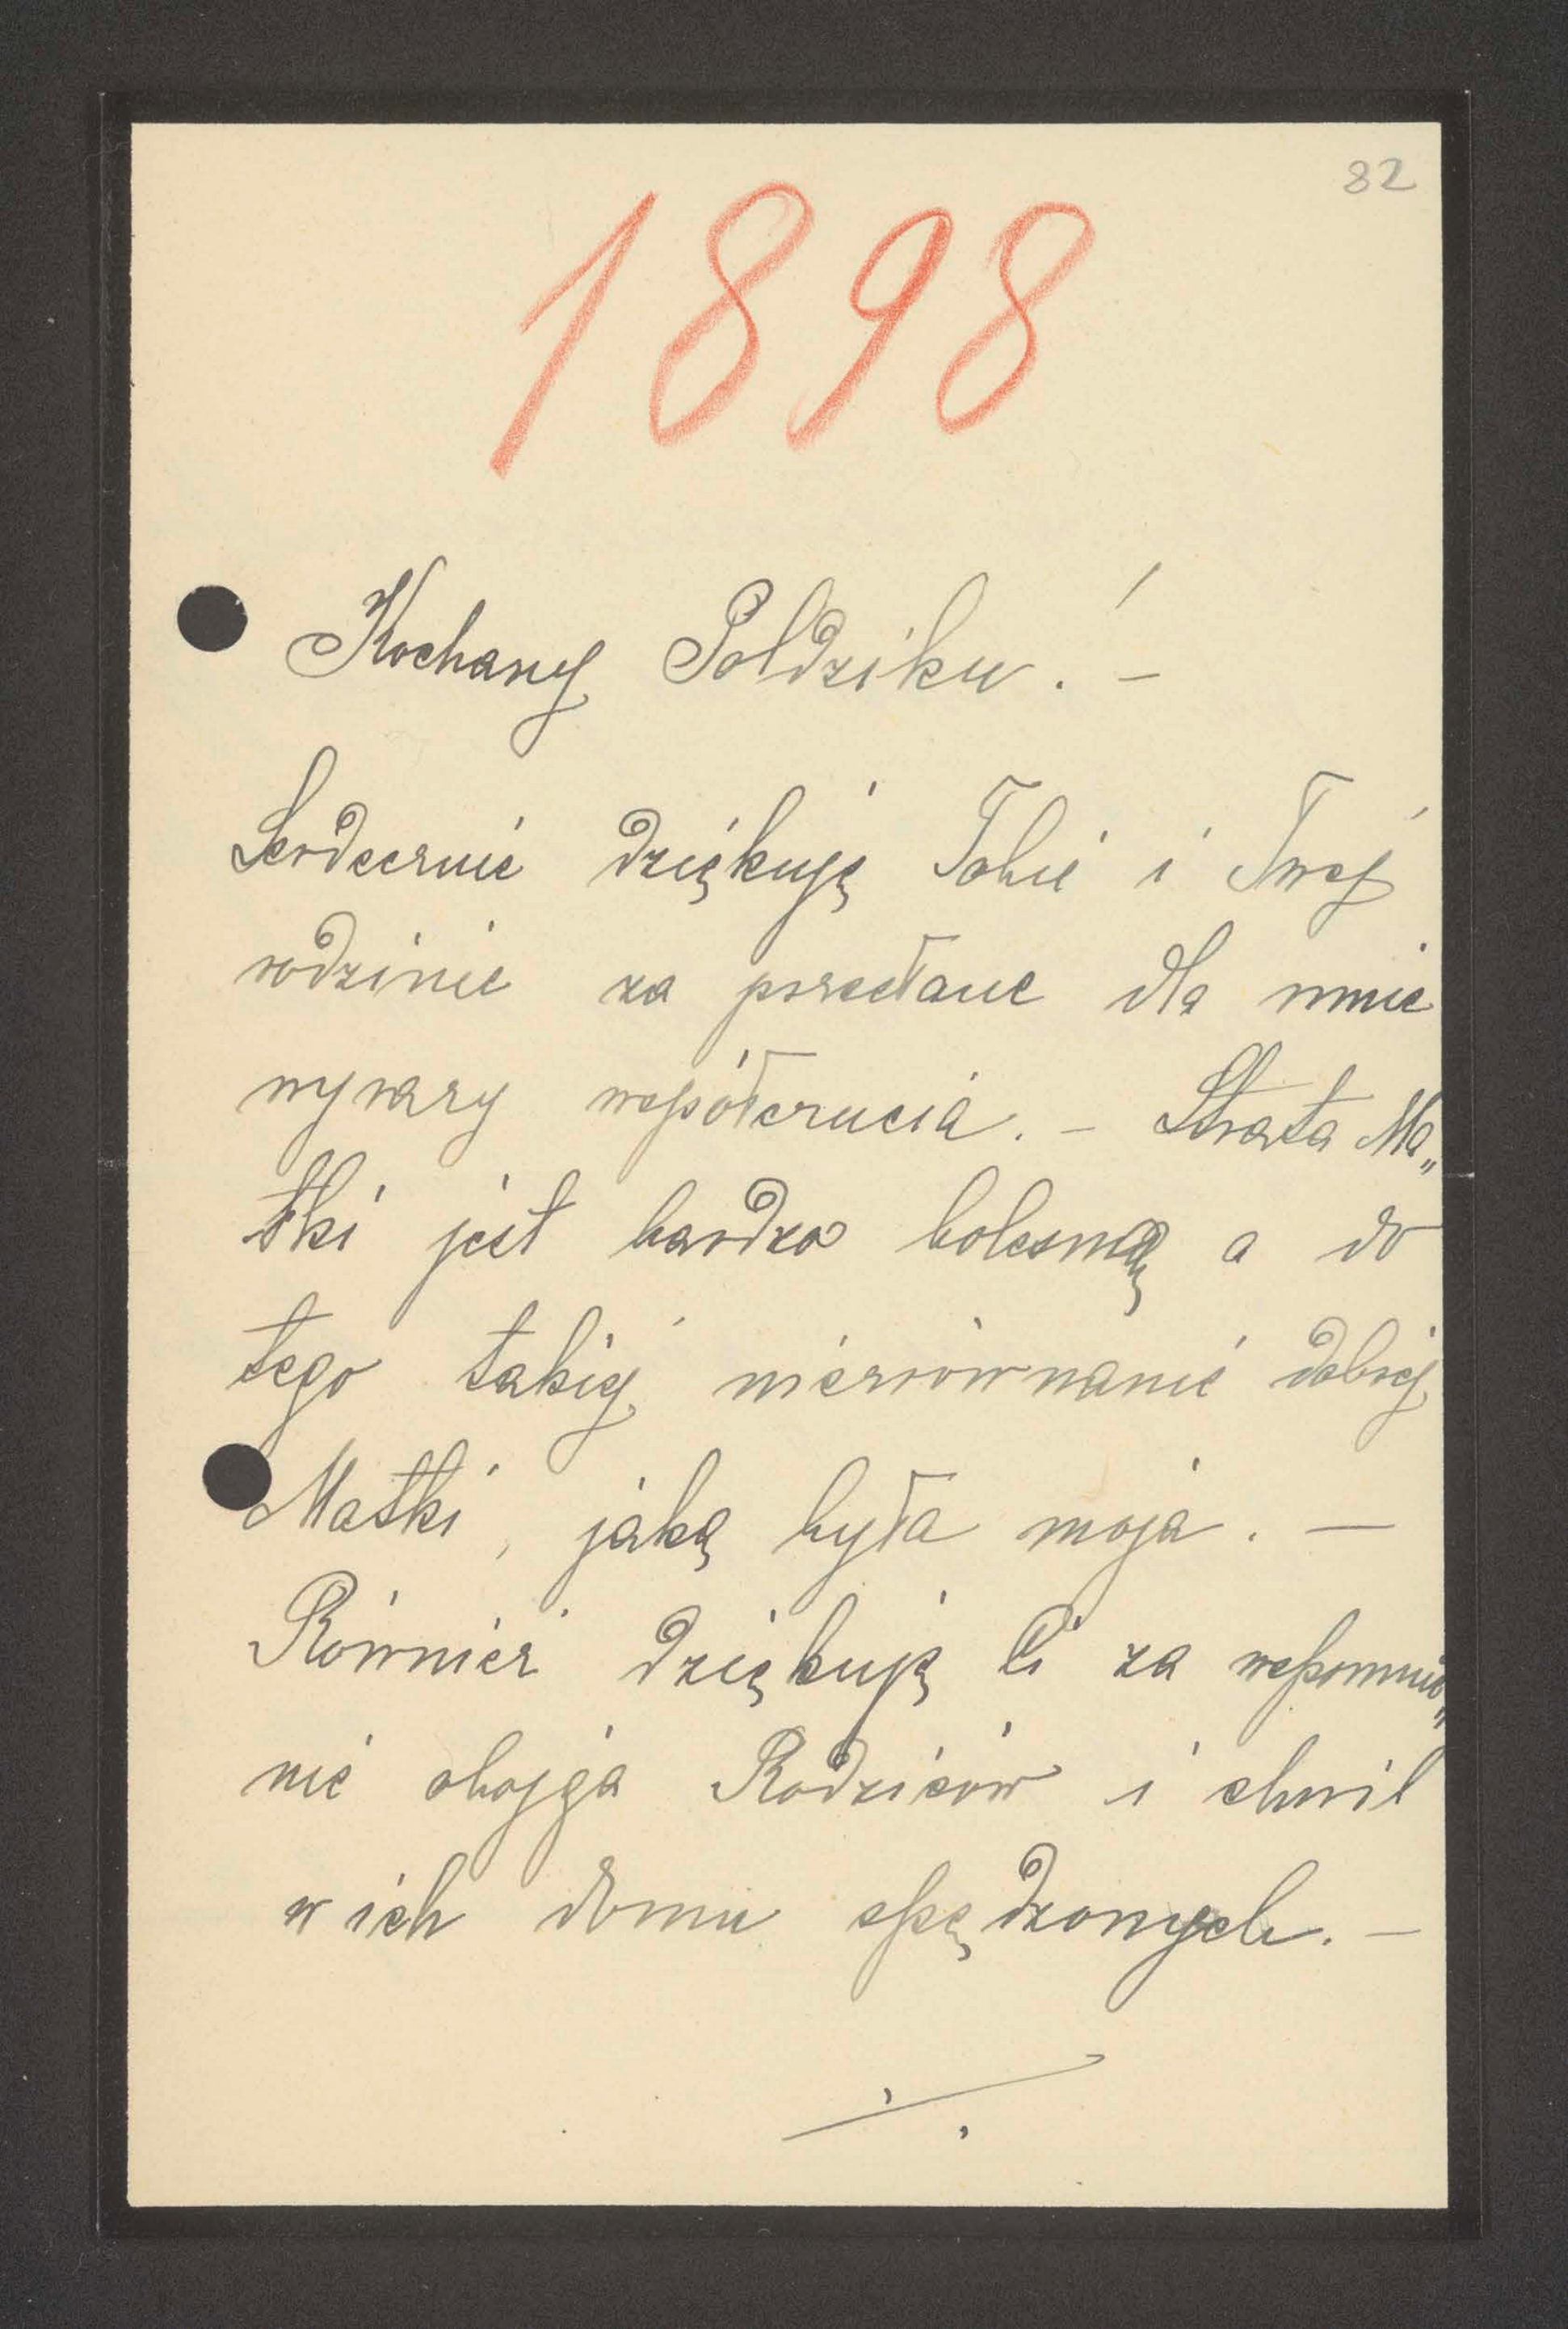 82
1898
Kochany Poldziku! –
Serdecznie dziękuję Tobie i Twej
rodzinie za przesłane dla mnie
wyrazy współczucia. – Strata Ma„
tki jest bardzo bolesną a do
tego takiej nierównanie dobrej
Matki, jaką była moja. –
Również dziękuję Ci za wspomnie„
nie obojga Rodziców i chwil
w ich domu spędzonych. –
./.